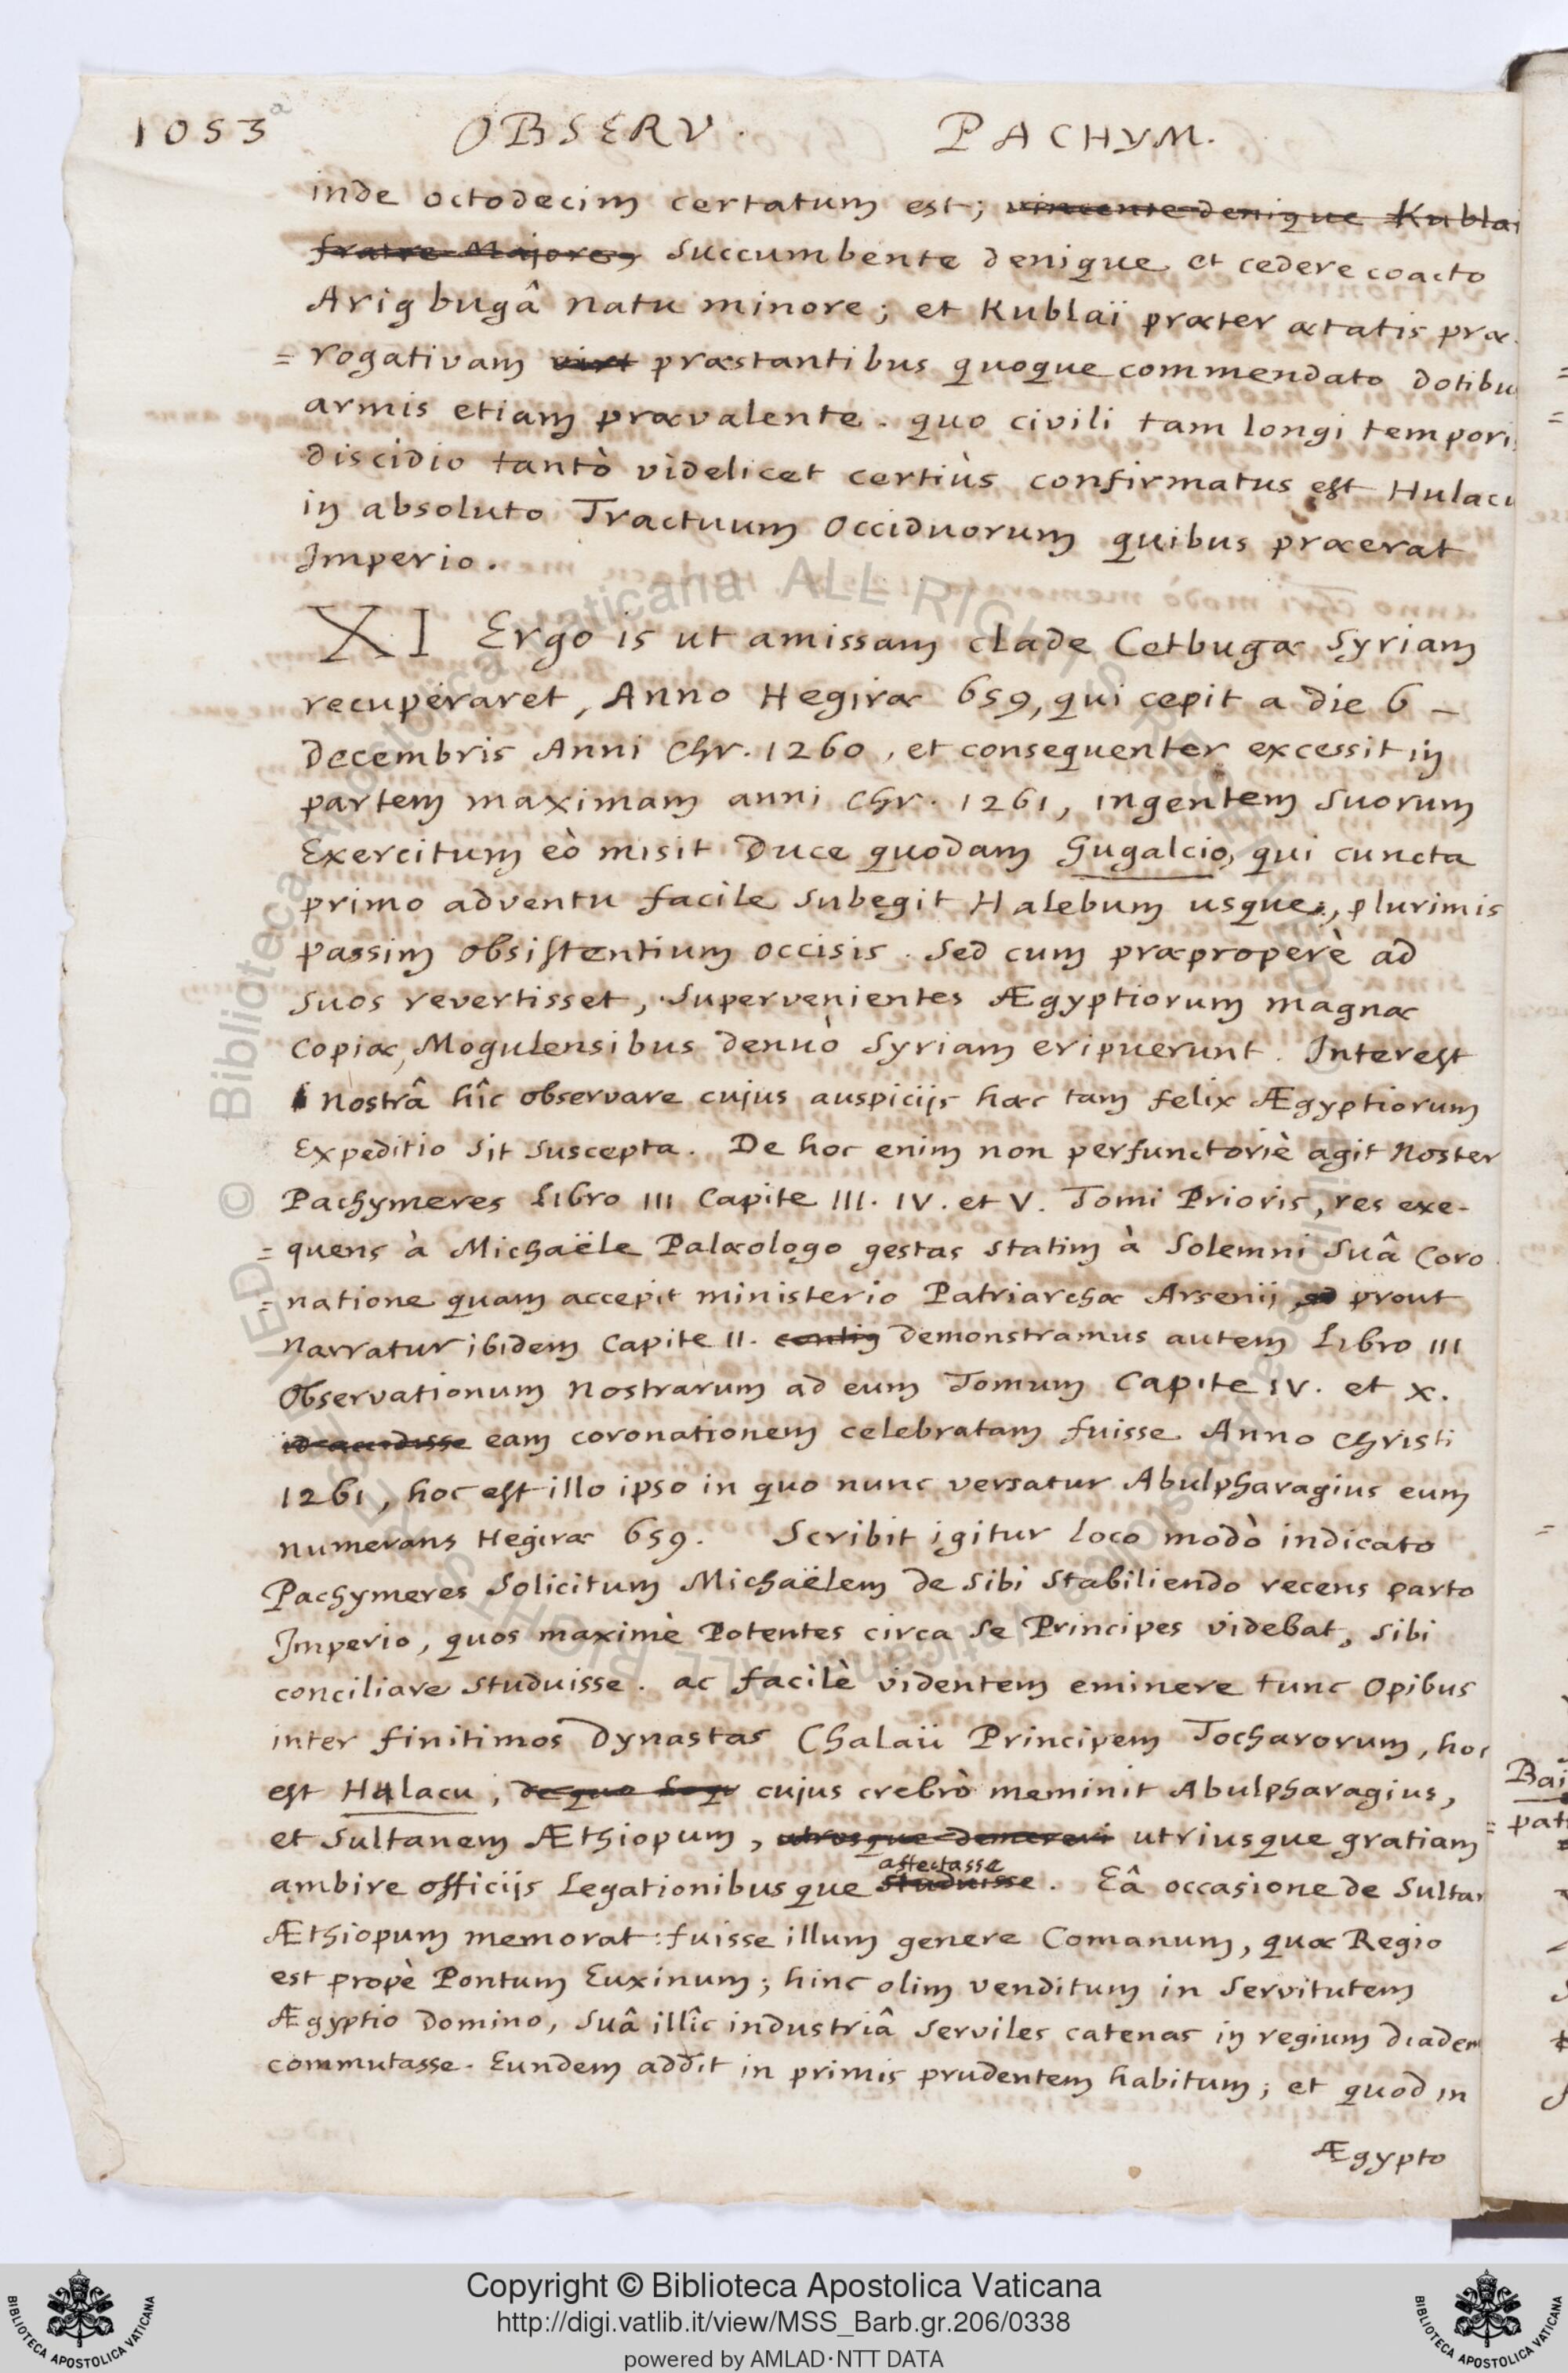 1053a OBSERV. PACHYM.
inde octodecim certatum est; vincente denique Kublai
fratre Majorem succumbente denique et cedere coacto
Arigbugâ natu minore; et Kublaï præter ætatis præ
= rogativam virt præstantibus quoque commendato dotibu
armis etiam prævalente. quo civili tam longi tempori
discidio tantò videlicet certiùs confirmatus est Hulacu
in absoluto Tractuum Occiduorum quibus præerat
Imperio.
XI Ergo is ut amissam clade Cetbugæ Syriam
recuperaret, Anno Hegiræ 659, qui cepit a die 6 –
Decembris Anni Chr. 1260, et consequenter excessit in
partem maximam anni Chr. 1261, ingentem suorum
Exercitum eò misit Duce quodam Gugalcio, qui cuncta
primo adventu facile subegit Halebum usque, plurimis
passim obsistentium occisis. Sed cum præproperè ad
suos revertisset, supervenientes Ægyptiorum magnæ
copiæ, Mogulensibus denuò Syriam eripuerunt. Interest
nostrâ hîc observare cujus auspicijs hæc tam felix Ægyptiorum
Expeditio sit suscepta. De hoc enim non perfunctoriè agit Noster
Pachymeres Libro III Capite III. IV. et V. Tomi Prioris, res exe-
= quens à Michaële Palæologo gestas statim à Solemni suâ Coro
= natione quam accepit ministerio Patriarchæ Arsenij, prout
narratur ibidem Capite II. contin Demonstramus autem Libro III
Observationum nostrarum ad eum Tomum Capite IV. et X.
id accidisse eam coronationem celebratam fuisse Anno Christi
1261, hoc est illo ipso in quo nunc versatur Abulpharagius eum
numerans Hegiræ 659. Scribit igitur loco modò indicato
Pachymeres solicitum Michaëlem de sibi stabiliendo recens parto
Imperio, quos maximè Potentes circa se Principes videbat, sibi
conciliare studuisse. ac facilè videntem eminere tunc opibus
inter finitimos Dynastas Chalaü Principem Tocharorum, hoc
est Hulacu, de quo loqu cujus crebrò meminit Abulpharagius,
et Sultanem Æthiopum, utrosque demereri utriusque gratiam
ambire officijs Legationibusque studuisse affectasse. Eâ occasione de Sultan
Æthiopum memorat: fuisse illum genere Comanum, quæ Regio
est propè Pontum Euxinum; hinc olim venditum in servitutem
Ægyptio Domino, suâ illîc industriâ serviles catenas in regium diadem
commutasse. Eundem addit in primis prudentem habitum; et quod in
Ægypto
Bai
= pat
© Biblioteca Apostolica Vaticana ALL RIGHTS RESERVED
Copyright © Biblioteca Apostolica Vaticana
http://digi.vatlib.it/view/MSS_Barb.gr.206/0338
powered by AMLAD·NTT DATA
BIBLIOTECA APOSTOLICA VATICANA
BIBLIOTECA APOSTOLICA VATICANA